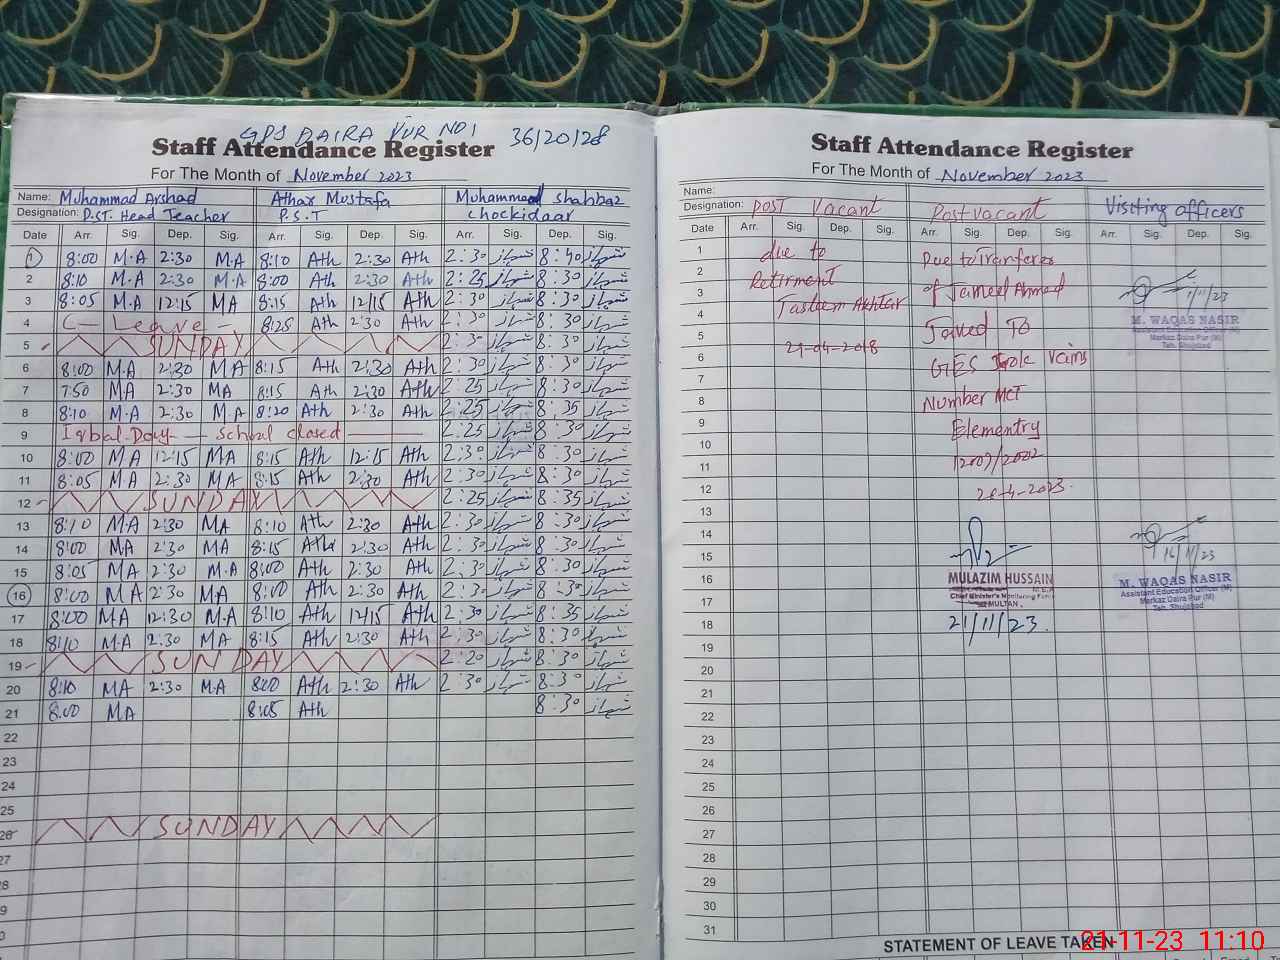 GPS DAIRA PUR NO 1 36/20/28
Staff Attendance Register
For The Month of November 2023
Name: Muhammad Arshad Athar Mustafa Muhammad Shahbaz
Designation: P.ST. Head Teacher P.S.T Chockidaar
Date Arr. Sig. Dep. Sig. Arr. Sig. Dep. Sig. Arr. Sig. Dep. Sig.
1 8:00 M.A 2:30 M.A 8:10 Ath 2:30 Ath 2:30 شہباز 8:40 شہباز
2 8:10 M.A 2:30 M.A 8:00 Ath 2:30 Ath 2:25 شہباز 8:30 شہباز
3 8:05 M.A 12:15 MA 8:15 Ath 12/15 Ath 2:30 شہباز 8:30 شہباز
4 C- Leave - 8:25 Ath 2:30 Ath 2:30 شہباز 8:30 شہباز
5 SUNDAY 2:30 شہباز 8:30 شہباز
6 8:00 M.A 2:30 MA 8:15 Ath 2:30 Ath 2:30 شہباز 8:30 شہباز
7 7:50 M.A 2:30 MA 8:15 Ath 2:30 Ath 2:25 شہباز 8:30 شہباز
8 8:10 M.A 2:30 M.A 8:20 Ath 2:30 Ath 2:25 شہباز 8:35 شہباز
9 Iqbal Day - School closed 2:25 شہباز 8:30 شہباز
10 8:00 MA 12:15 MA 8:15 Ath 12:15 Ath 2:30 شہباز 8:30 شہباز
11 8:05 MA 2:30 MA 8:15 Ath 2:30 Ath 2:30 شہباز 8:30 شہباز
12 SUNDAY 2:25 شہباز 8:35 شہباز
13 8:10 M.A 2:30 MA 8:10 Ath 2:30 Ath 2:30 شہباز 8:30 شہباز
14 8:00 MA 2:30 MA 8:15 Ath 2:30 Ath 2:30 شہباز 8:30 شہباز
15 8:05 MA 2:30 M.A 8:00 Ath 2:30 Ath 2:30 شہباز 8:30 شہباز
16 8:00 MA 2:30 MA 8:00 Ath 2:30 Ath 2:30 شہباز 8:30 شہباز
17 8:00 MA 12:30 MA 8:10 Ath 12/15 Ath 2:30 شہباز 8:35 شہباز
18 8:10 MA 2:30 MA 8:15 Ath 2:30 Ath 2:30 شہباز 8:30 شہباز
19 SUNDAY 2:20 شہباز 8:30 شہباز
20 8:10 MA 2:30 M.A 8:00 Ath 2:30 Ath 2:30 شہباز 8:30 شہباز
21 8:00 MA 8:05 Ath 8:30 شہباز
22
23
24
25
26 SUNDAY
27
Staff Attendance Register
For The Month of November 2023
Name:
Designation: Post Vacant Post vacant Visiting officers
Date Arr. Sig. Dep. Sig. Arr. Sig. Dep. Sig. Arr. Sig. Dep. Sig.
1 due to Due to Tranferer
2 Retirment of Jameed Ahmed 1/11/23
3 Tasleem Akhtar
4 Joined To M. WAQAS NASIR
Assistant Education Officer (M)
Markaz Daira Pur (M)
Teh. Shujabad
5 21-04-2018
6 GES Vains
7
8 Number MCT
9 Elementry
10 12009/2002
11
12 20-4-2023.
13
14
15 16/11/23
16 MULAZIM HUSSAIN M. WAQAS NASIR
M.E.A Assistant Education Officer (M)
Chief Minister's Monitoring Force Markaz Daira Pur (M)
17 MULTAN. Teh. Shujabad
18 21/11/23.
19
20
21
22
23
24
25
26
27
28
29
30
31
STATEMENT OF LEAVE TAKEN
21-11-23 11:10